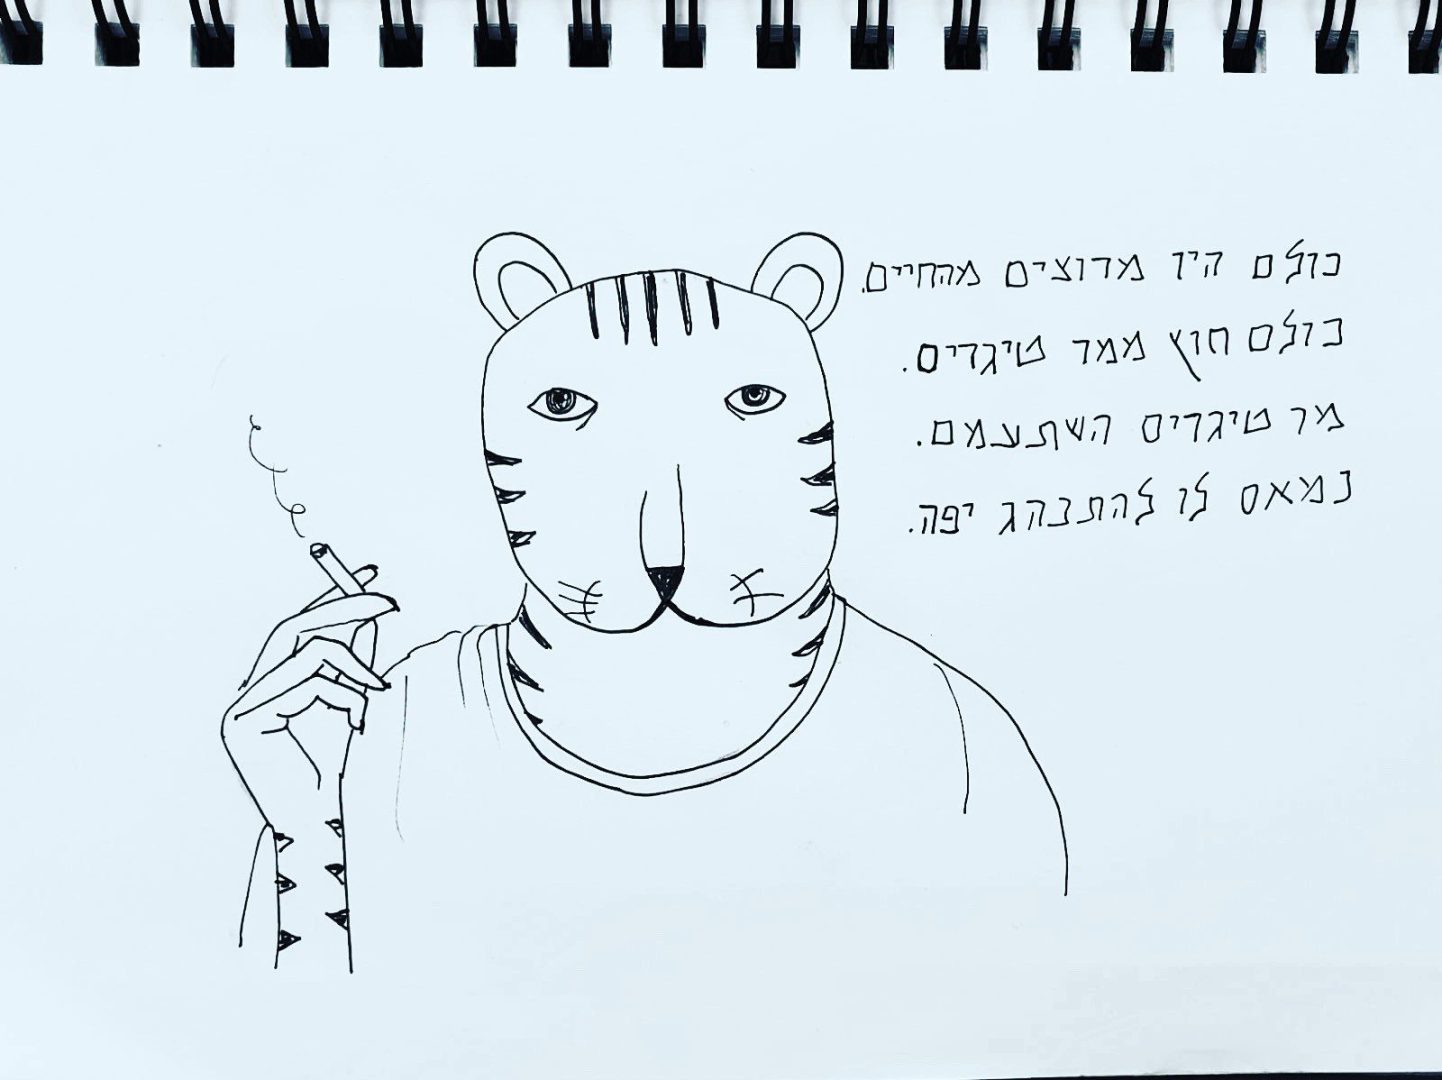 כולם היו מרוצים מהחיים.
כולם חוץ ממר טיגריס.
מר טיגריס השתעמם.
נמאס לו להתנהג יפה.